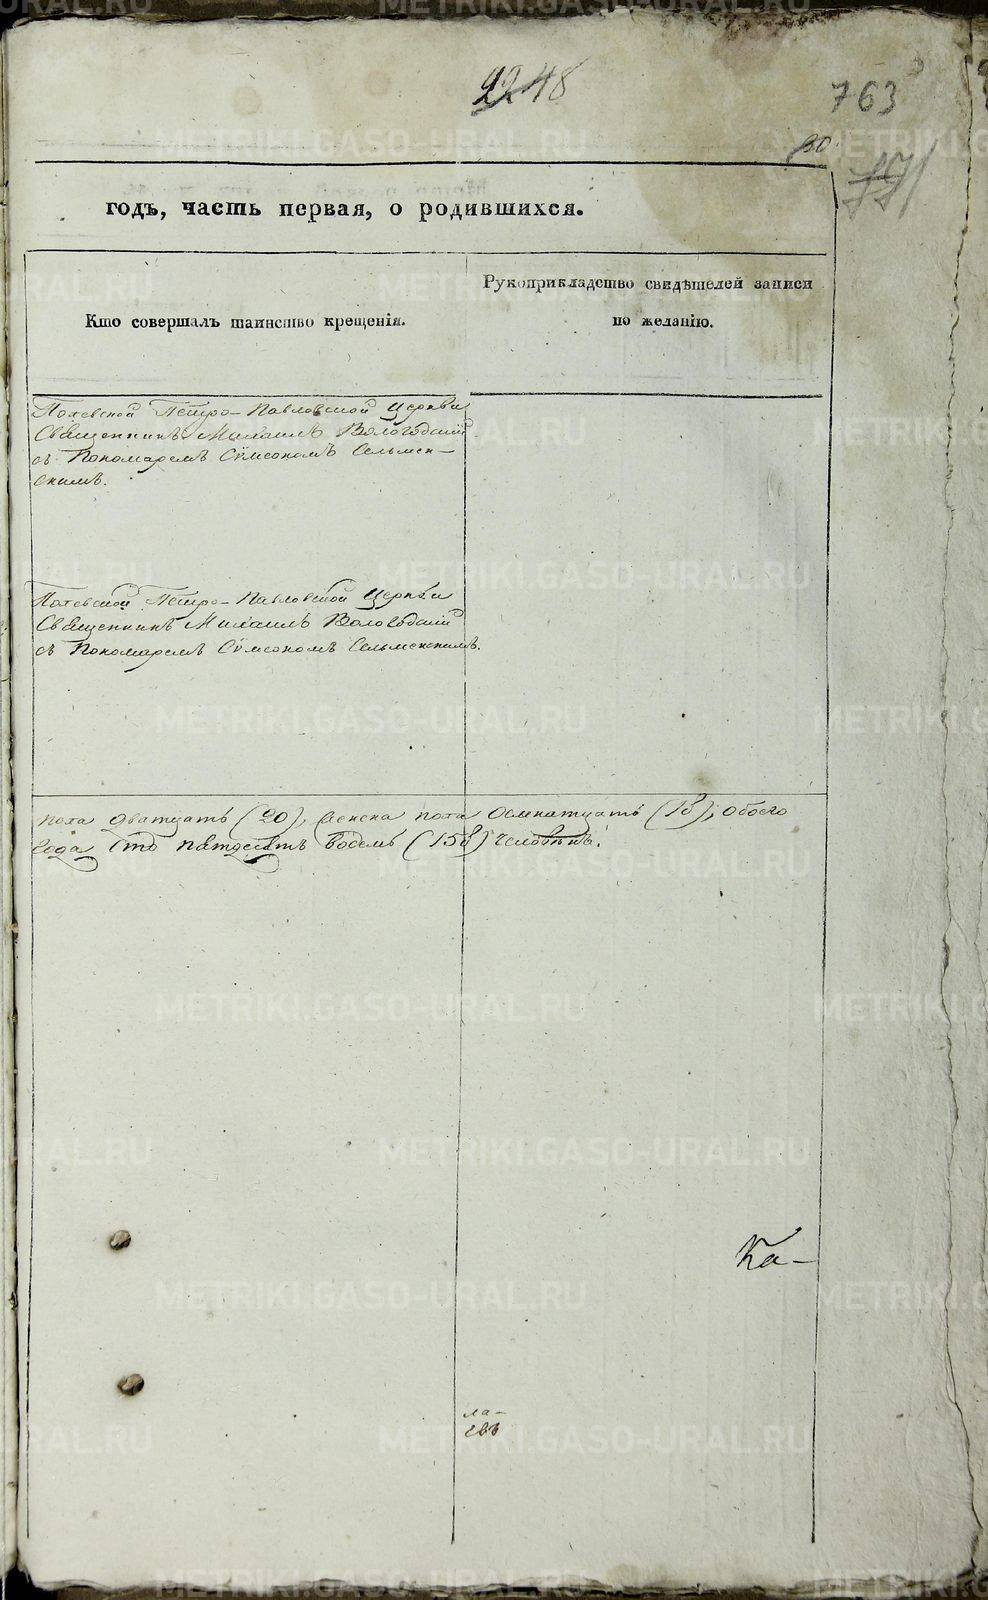 2248
763
80
годъ, часть первая, о родившихся.
Кто совершалъ таинство крещенія.
Рукоприкладство свидѣтелей записи
по желанію.
Петро-Павловской Церкви
Священникъ Михаилъ Вологодскій
съ Пономаремъ Сѵмеономъ Сельмен-
скимъ.
Петро-Павловской Церкви
Священникъ Михаилъ Вологодскій
съ Пономаремъ Сѵмеономъ Сельменскимъ.
пола дватцать (20), женска пола осмнатцать (18), обоего
года сто пятдесятъ восемь (158) человѣкъ.
Ка-
ла-
евъ
METRIKI.GASO-URAL.RU